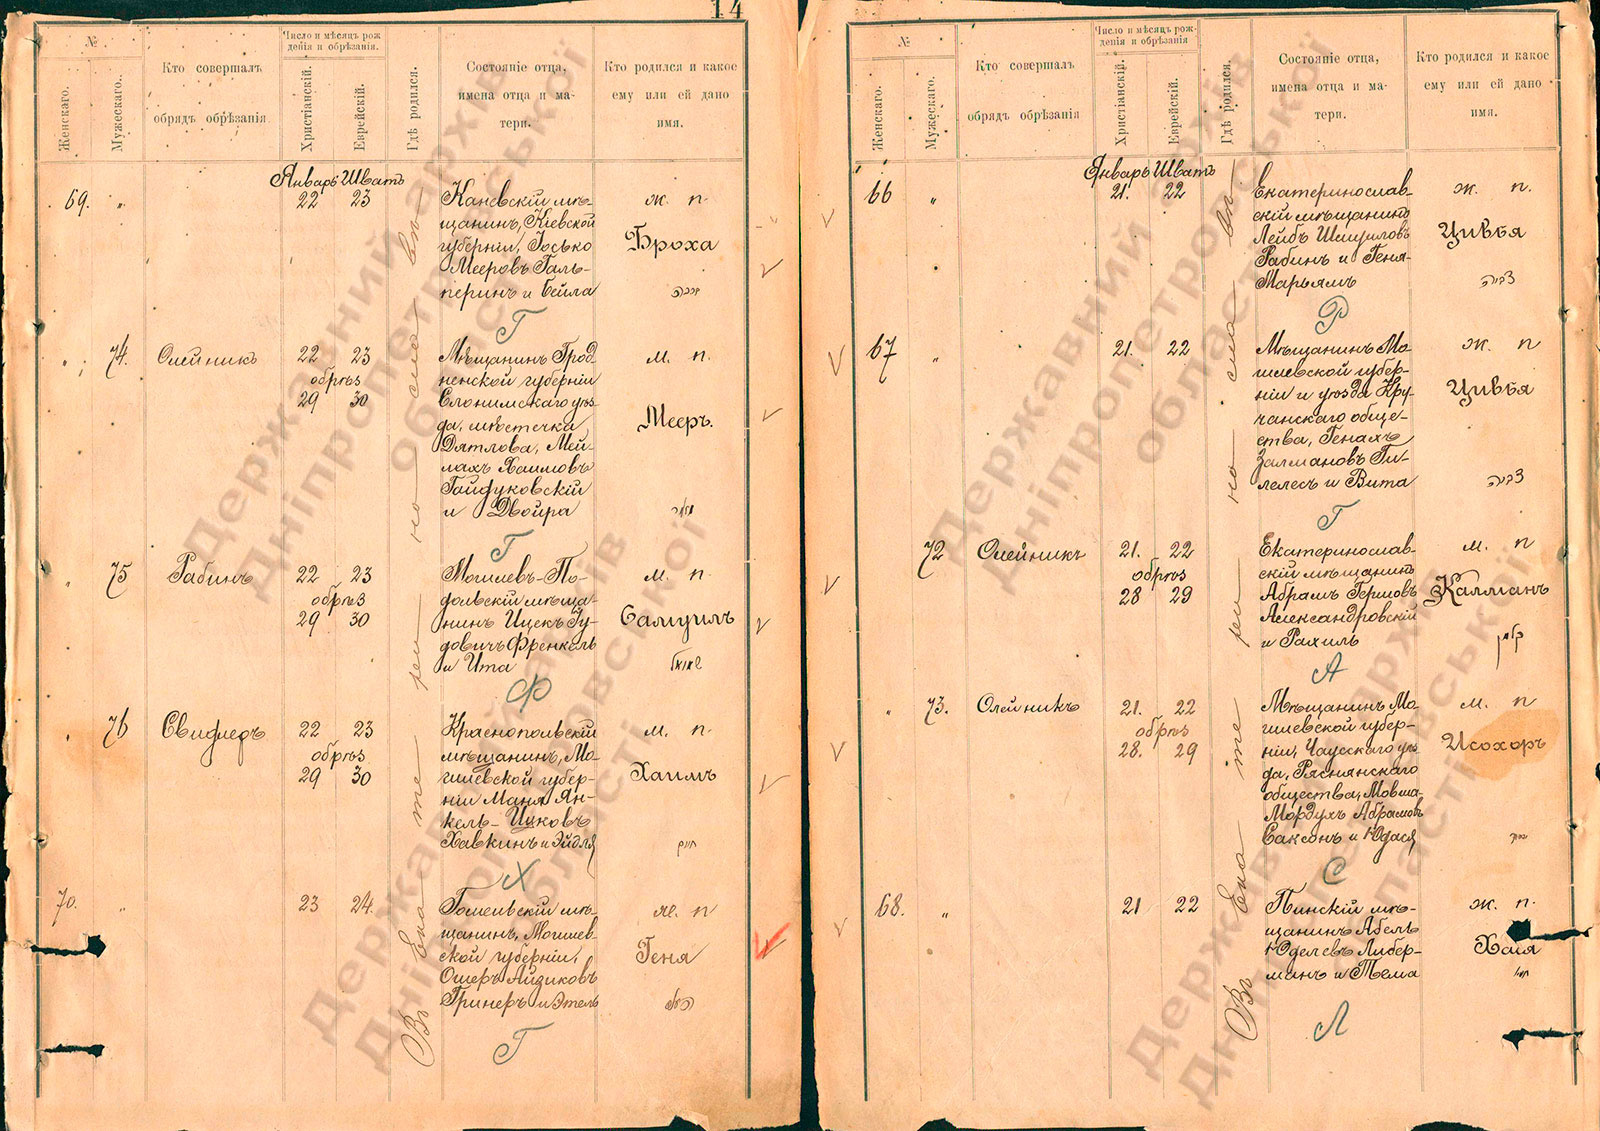 14
№
Женскаго.
Мужескаго.
Кто совершалъ
обрядъ обрѣзанія.
Число и мѣсяцъ рож
денія и обрѣзанія.
Христіанскій.
Еврейскій.
Гдѣ родился.
Состояніе отца,
имена отца и ма-
тери.
Кто родился и какое
ему или ей дано
имя.
Январь Шватъ
69. "
22 23
Каневскій мѣ-
щанинъ, Кіевской
губерніи, Іосько
Мееровъ Галь-
перинъ и Бейла
ж. п.
Броха
ברכה
Г
" 74. Олейникъ
22 23
обрѣз
29 30
Мѣщанинъ Грод
ненской губерніи
Слонимскаго уѣз-
да, мѣстечка
Дятлова, Мей-
лахъ Хаимовъ
Гайдуковскій
и Двойра
м. п.
Мееръ.
Г
" 75 Рабинъ
22 23
обрѣз
29 30
Могилевъ-По-
дольскій мѣща-
нинъ Ицекъ Іу-
довичъ Френкель
и Ита
м. п.
Самуилъ
שמואל
Ф
" 76 Свидлеръ
22 23
обрѣз
29 30
Краснопольскій
мѣщанинъ, Мо-
гилевской губер-
ніи Маня Ян-
кель-Ицковъ
Хавкинъ и Эйдля
м. п.
Хаимъ
חיים
Х
70. "
23 24.
Гомельскій мѣ-
щанинъ, Могилев-
ской губерніи,
Ошеръ Айзиковъ
Гринеръ и Этель
ж. п
Геня
Г
Въ Ека те ри но сла вѣ
№
Женскаго.
Мужескаго.
Кто совершалъ
обрядъ обрѣзанія
Число и мѣсяцъ рож-
денія и обрѣзанія
Христіанскій.
Еврейскій.
Гдѣ родился.
Состояніе отца,
имена отца и ма-
тери.
Кто родился и какое
ему или ей дано
имя.
Январь Шватъ
66 "
21. 22
Екатеринослав-
скій мѣщанинъ
Лейбъ Шмуиловъ
Рабинъ и Геня-
Марьямъ
ж. п.
Цивья
צביה
Р
67 "
21. 22
Мѣщанинъ Мо-
гилевской губер-
ніи и уѣзда Кру-
чанскаго обще-
ства, Генахъ
Залмановъ Ги-
лелесъ и Вита
ж. п
Цивья
צביה
Г
72 Олейникъ
21. 22
обрѣз
28 29
Екатеринослав-
скій мѣщанинъ
Абрамъ Гершовъ
Александровскій
и Рахиль
м. п
Калманъ
קלמן
А
" 73. Олейникъ
21. 22
обрѣз
28. 29
Мѣщанинъ Мо-
гилевской губер-
ніи, Чаусскаго уѣз-
да, Ряснянскаго
общества, Мовша-
Мордухъ Абрамовъ
Саксонъ и Юдася
м. п
Исохоръ
С
68. "
21 22
Пинскій мѣ-
щанинъ Абель
Юделевъ Либер-
манъ и Тема
ж. п.
Хая
חיה
Л
Въ Ека те ри но сла вѣ
Державний архів
Дніпропетровської
області